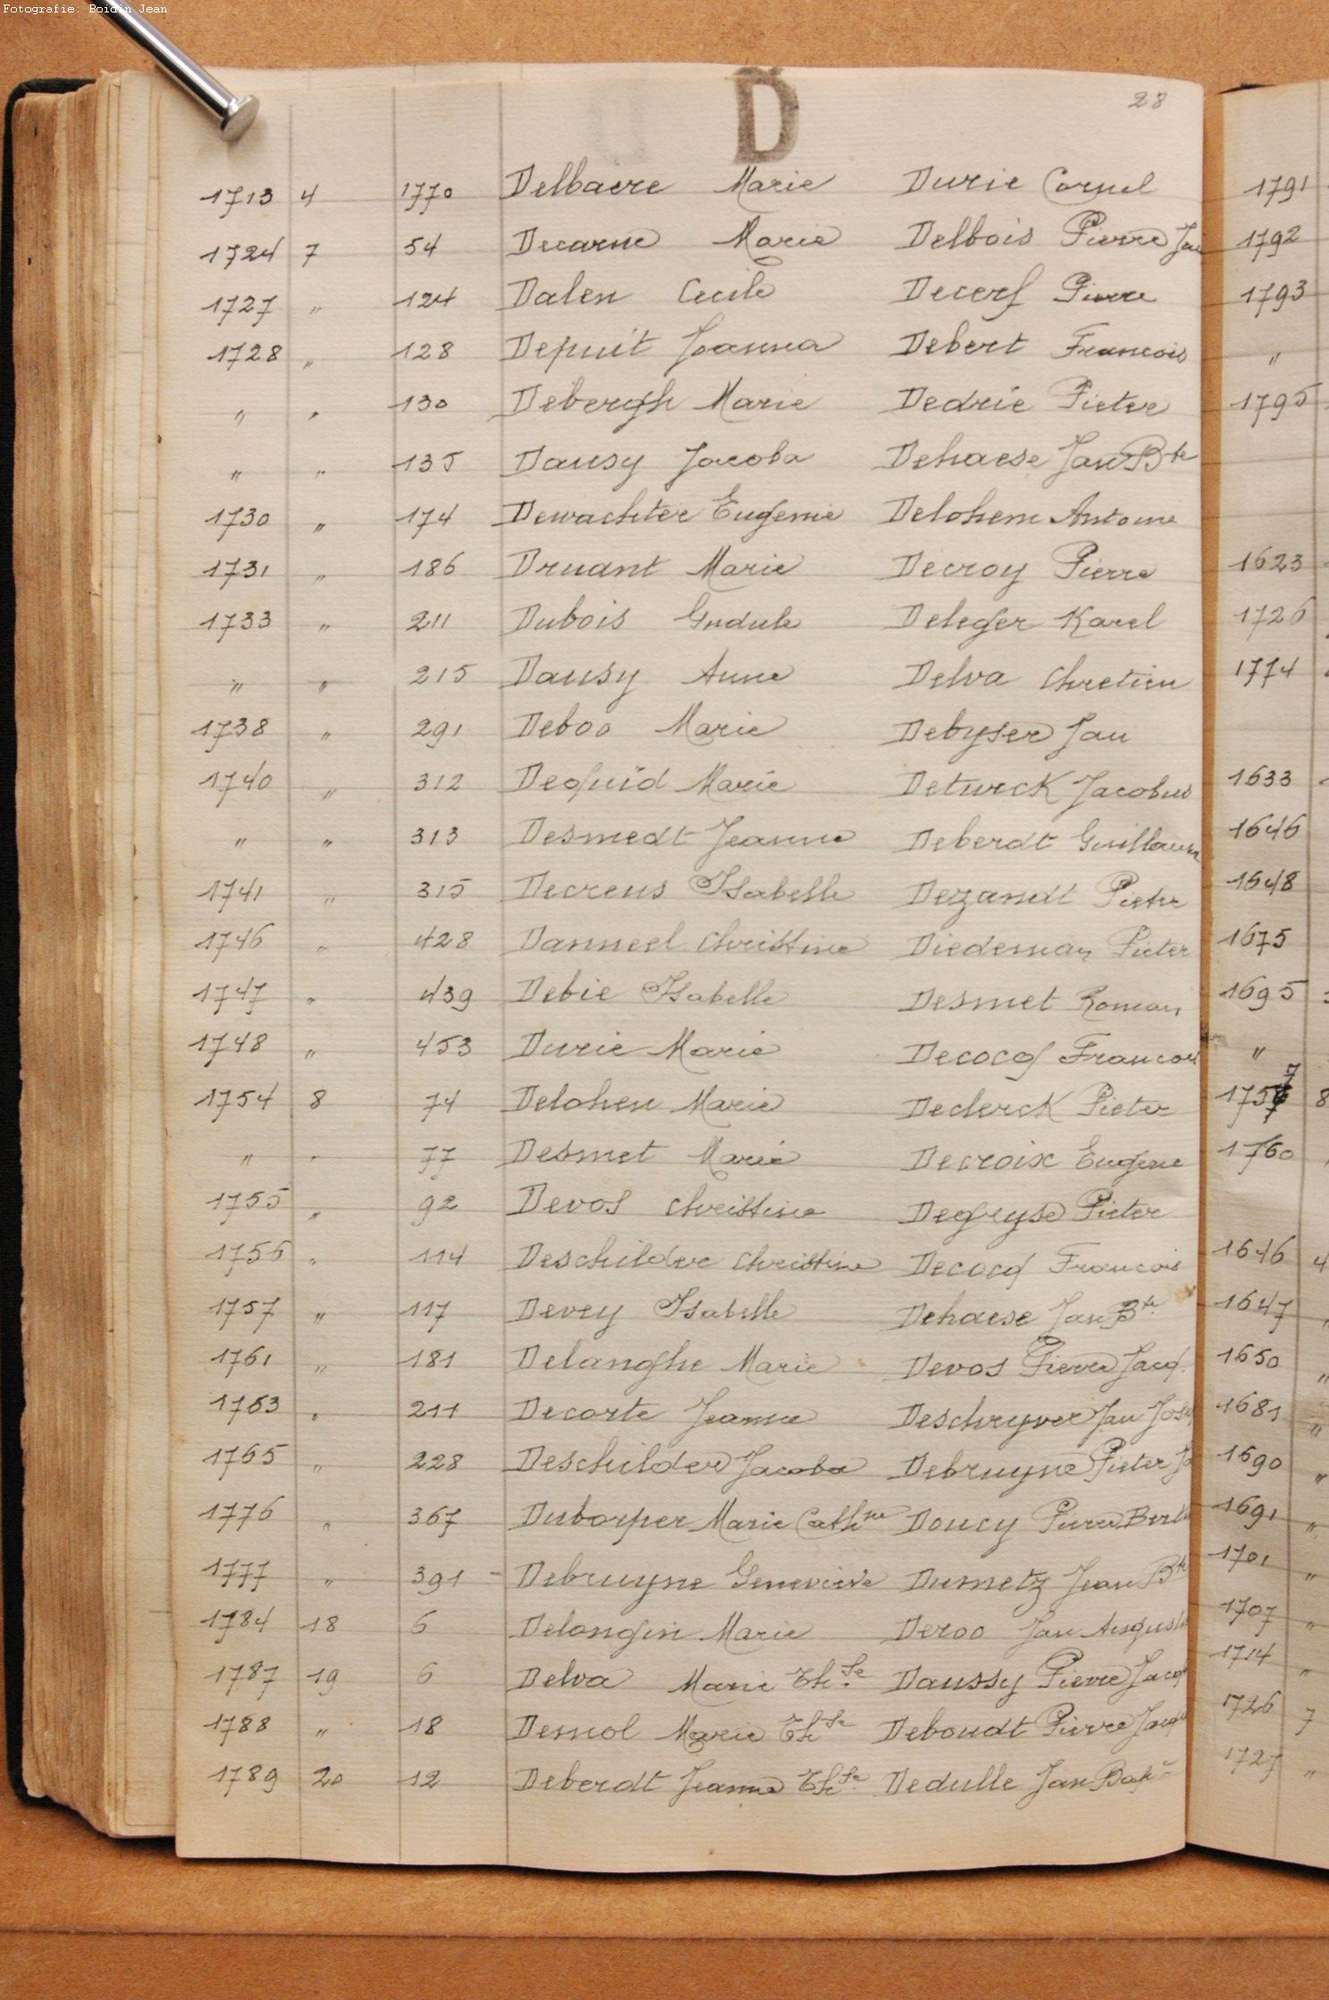 Fotografie: Boidin Jean
D
28
1713 4 1770 Delbaere Marie Durie Cornel
1724 7 54 Decarne Marie Delbois Pierre
1727 " 124 Dalen Cecile Decerf Pierre
1728 " 128 Depuit Joanna Debert Francois
" " 130 Debergh Marie Dedrie Pieter
" " 135 Dausy Jacoba Dehaese Jan Bte
1730 " 174 Dewachter Eugenie Delohem Antoine
1731 " 186 Druant Marie Decroy Pierre
1733 " 211 Dubois Gudule Deleger Karel
" " 215 Dausy Anne Delva Chretien
1738 " 291 Deboo Marie Debyser Jan
1740 " 312 Marie Deturck Jacobus
" " 313 Desmedt Jeanne Deberdt
1741 " 315 Decreus Isabelle Dezandt Pieter
1746 " 428 Danneel Christine Diedeman Pieter
1747 " 439 Debie Isabelle Desmet Roman
1748 " 453 Durie Marie Decocq Francois
1754 8 74 Delohen Marie Declerck Pieter
" " 77 Desmet Marie Decroix Eugene
1755 " 92 Devos Christine Degryse Pieter
1756 " 114 Deschilder Christine Decocq Francois
1757 " 117 Devey Isabelle Dehaese Jan Bte
1761 " 181 Delanghe Marie Devos Pierre Jacq.
1763 " 211 Decorte Jeanne Deschryver Jan
1765 " 228 Deschilder Jacoba Debruyne Pieter
1776 " 367 Marie Cathne Doucy Pierre
1777 " 391 - Debruyne Genevieve Dumetz Jean Bte
1784 18 6 Delangin Marie Deroo Jan
1787 19 6 Delva Marie Thse Daussy Pierre
1788 " 18 Desmol Marie Thse Deboudt Pierre
1789 20 12 Deberdt Jeanne Thse Dedulle Jan Bapt
1791
1792
1793
"
1795
1623
1726
1774
1633
1646
1648
1675
1695
"
1757 8
1760
1646 4
1647 "
1650 "
1681 "
1690 "
1691 "
1701 "
1707 "
1714 "
1726 7
1727 "